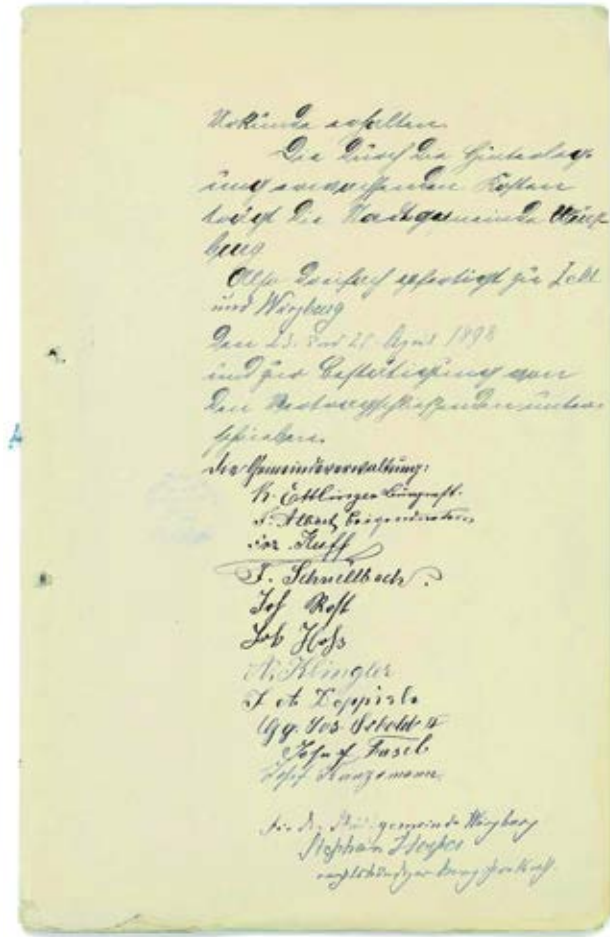 Urkunde erhalten.
Die durch die Hinterleg-
ung erwachsenden Kosten
trägt die Stadtgemeinde Würz-
burg
Also dreifach gefertigt zu Zell
und Würzburg
den 23. und 25. April 1898
und zur Bestätigung von
den Vertragschließenden unter-
schrieben.
die Gemeindeverwaltung:
K. Ettlinger Bürgermst.
F. Albert, Beigeordneter
Kuff
F. Schnellbach
Jos Rost
Joh Hofs
A. Klingler
F. A.
Gg. Jos. Seboldt II
Josef Fasel
Josef
Für die Stadtgemeinde Würzburg
Stephan
rechtskundiger Bürgermeister